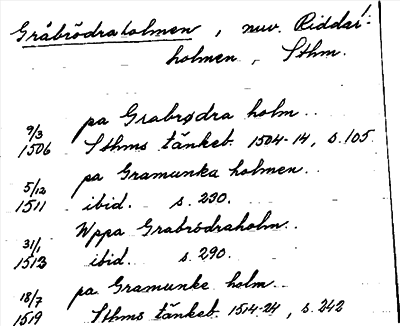 Gråbrödraholmen, nuv. Riddar-
holmen, Sthm.
pa Grabrødra holm..
9/3 1506 Sthms tänkeb. 1504-14, s. 105
pa Gramunka holmen..
5/12 1511 ibid. s. 230.
Wppa Grabrödraholm..
31/1 1513 ibid. s. 290.
pa Gramunke holm..
18/7 1519 Sthms tänkeb. 1514-24, s. 242